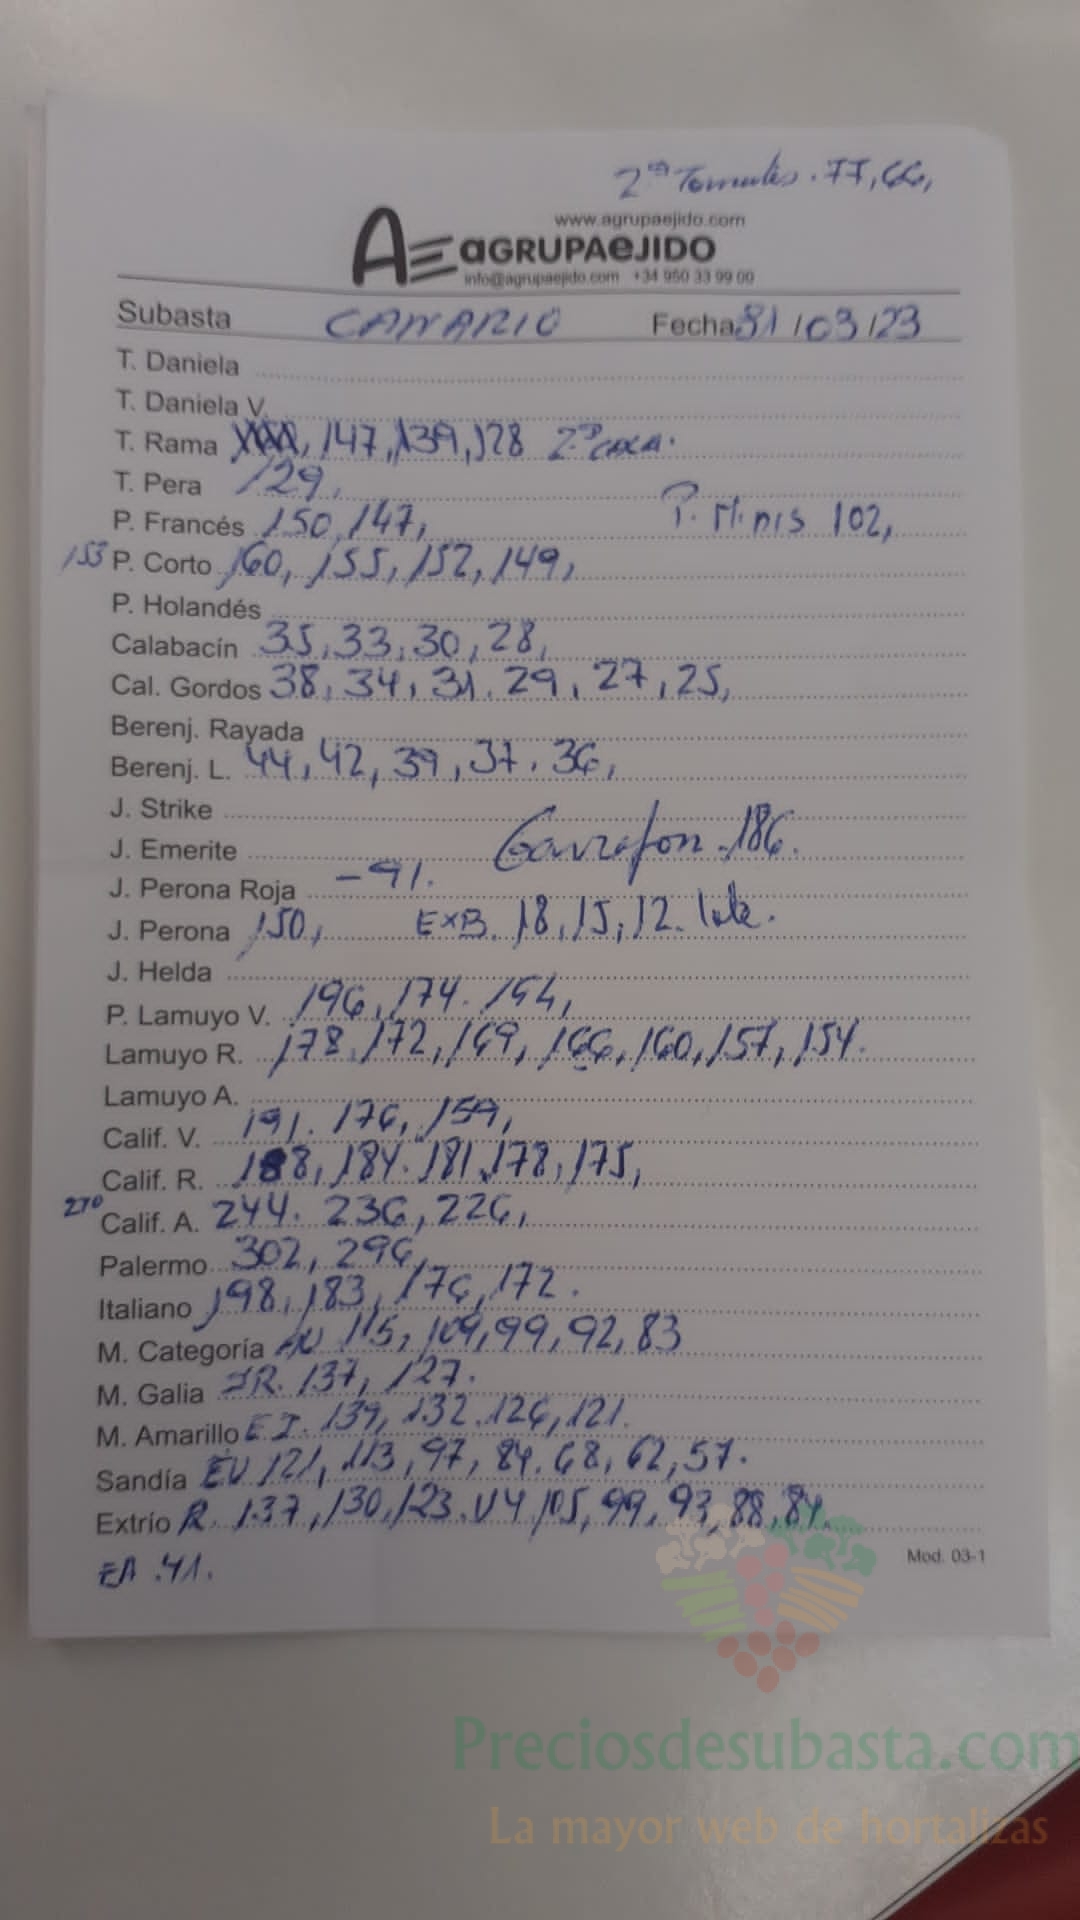 2ª Tomates. 77, 66,
www.agrupaejido.com
AE aGRUPAeJIDO
info@agrupaejido.com +34 950 33 99 00
Subasta CANARIO Fecha 31/03/23
T. Daniela
T. Daniela V.
T. Rama , 147, 139, 128 2ª CAXA.
T. Pera 129,
P. Francés 150, 147, P. Minis 102,
153 P. Corto 160, 155, 152, 149,
P. Holandés
Calabacín 35, 33, 30, 28,
Cal. Gordos 38, 34, 31. 29, 27, 25,
Berenj. Rayada
Berenj. L. 44, 42, 39, 37. 36,
J. Strike
J. Emerite Garrafon. 186.
J. Perona Roja - 91.
J. Perona 150, EXB. 18, 15, 12.
J. Helda
P. Lamuyo V. 196, 174. 154,
Lamuyo R. 178, 172, 169, 166, 160, 157, 154.
Lamuyo A.
Calif. V. 191. 176, 159,
Calif. R. 188, 184. 181, 178, 175,
270 Calif. A. 244. 236, 226,
Palermo 302, 296,
Italiano 198, 183, 176, 172.
M. Categoría 115, 109, 99, 92, 83
M. Galia JR. 137, 127.
M. Amarillo E I. 139, 132. 126, 121.
Sandía EV 121, 113, 97, 84. 68, 62, 57.
Extrío R. 137, 130, 123. V4 105, 99, 93, 88, 84.
EA. 41.
Mod. 03-1
Preciosdesubasta.com
La mayor web de hortalizas